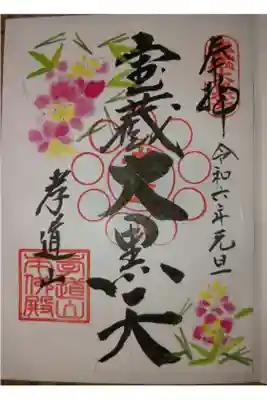 奉拝
令和六年元旦
宝蔵大黒天
孝道山
孝道山
本仏殿